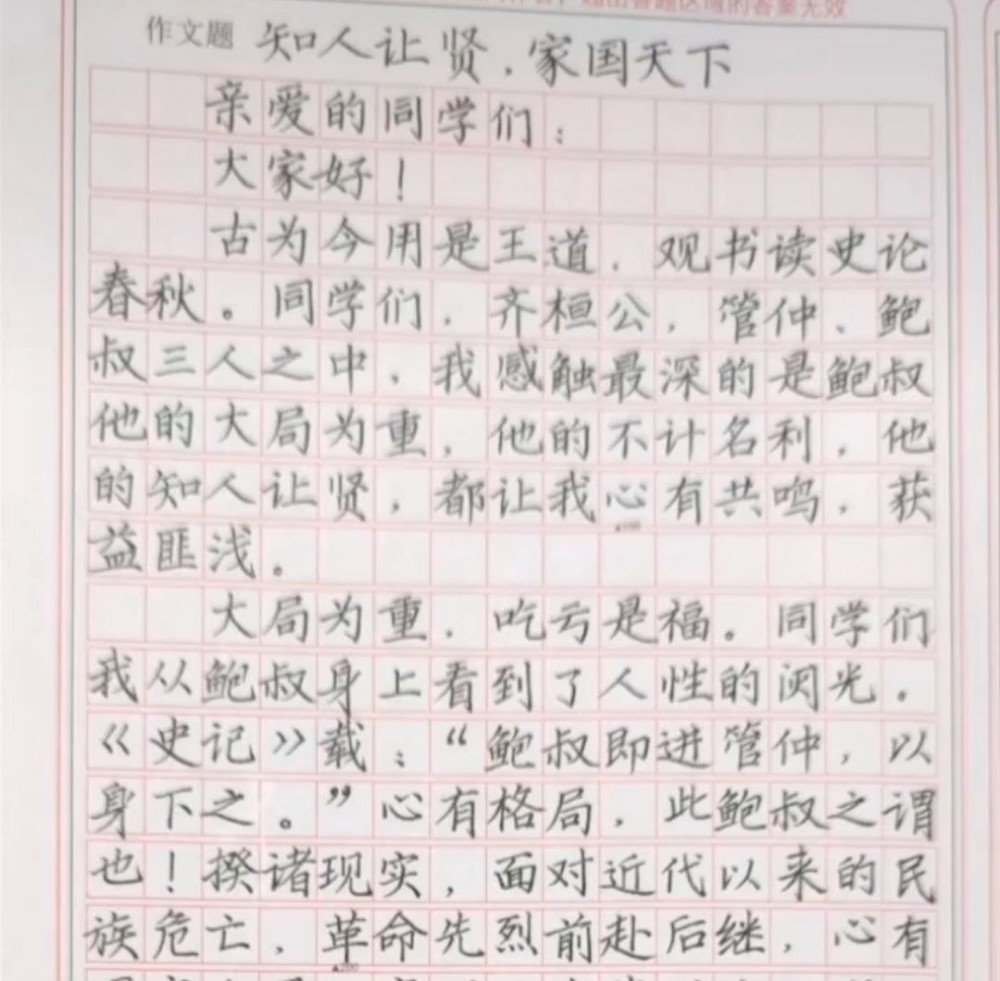 超出答题区域的答案无效
作文题 知人让贤，家国天下
亲爱的同学们：
大家好！
古为今用是王道，观书读史论
春秋。同学们，齐桓公，管仲、鲍
叔三人之中，我感触最深的是鲍叔
他的大局为重，他的不计名利，他
的知人让贤，都让我心有共鸣，获
益匪浅。
大局为重，吃亏是福。同学们
我从鲍叔身上看到了人性的闪光。
《史记》载：“鲍叔即进管仲，以
身下之。”心有格局，此鲍叔之谓
也！揆诸现实，面对近代以来的民
族危亡，革命先烈前赴后继，心有